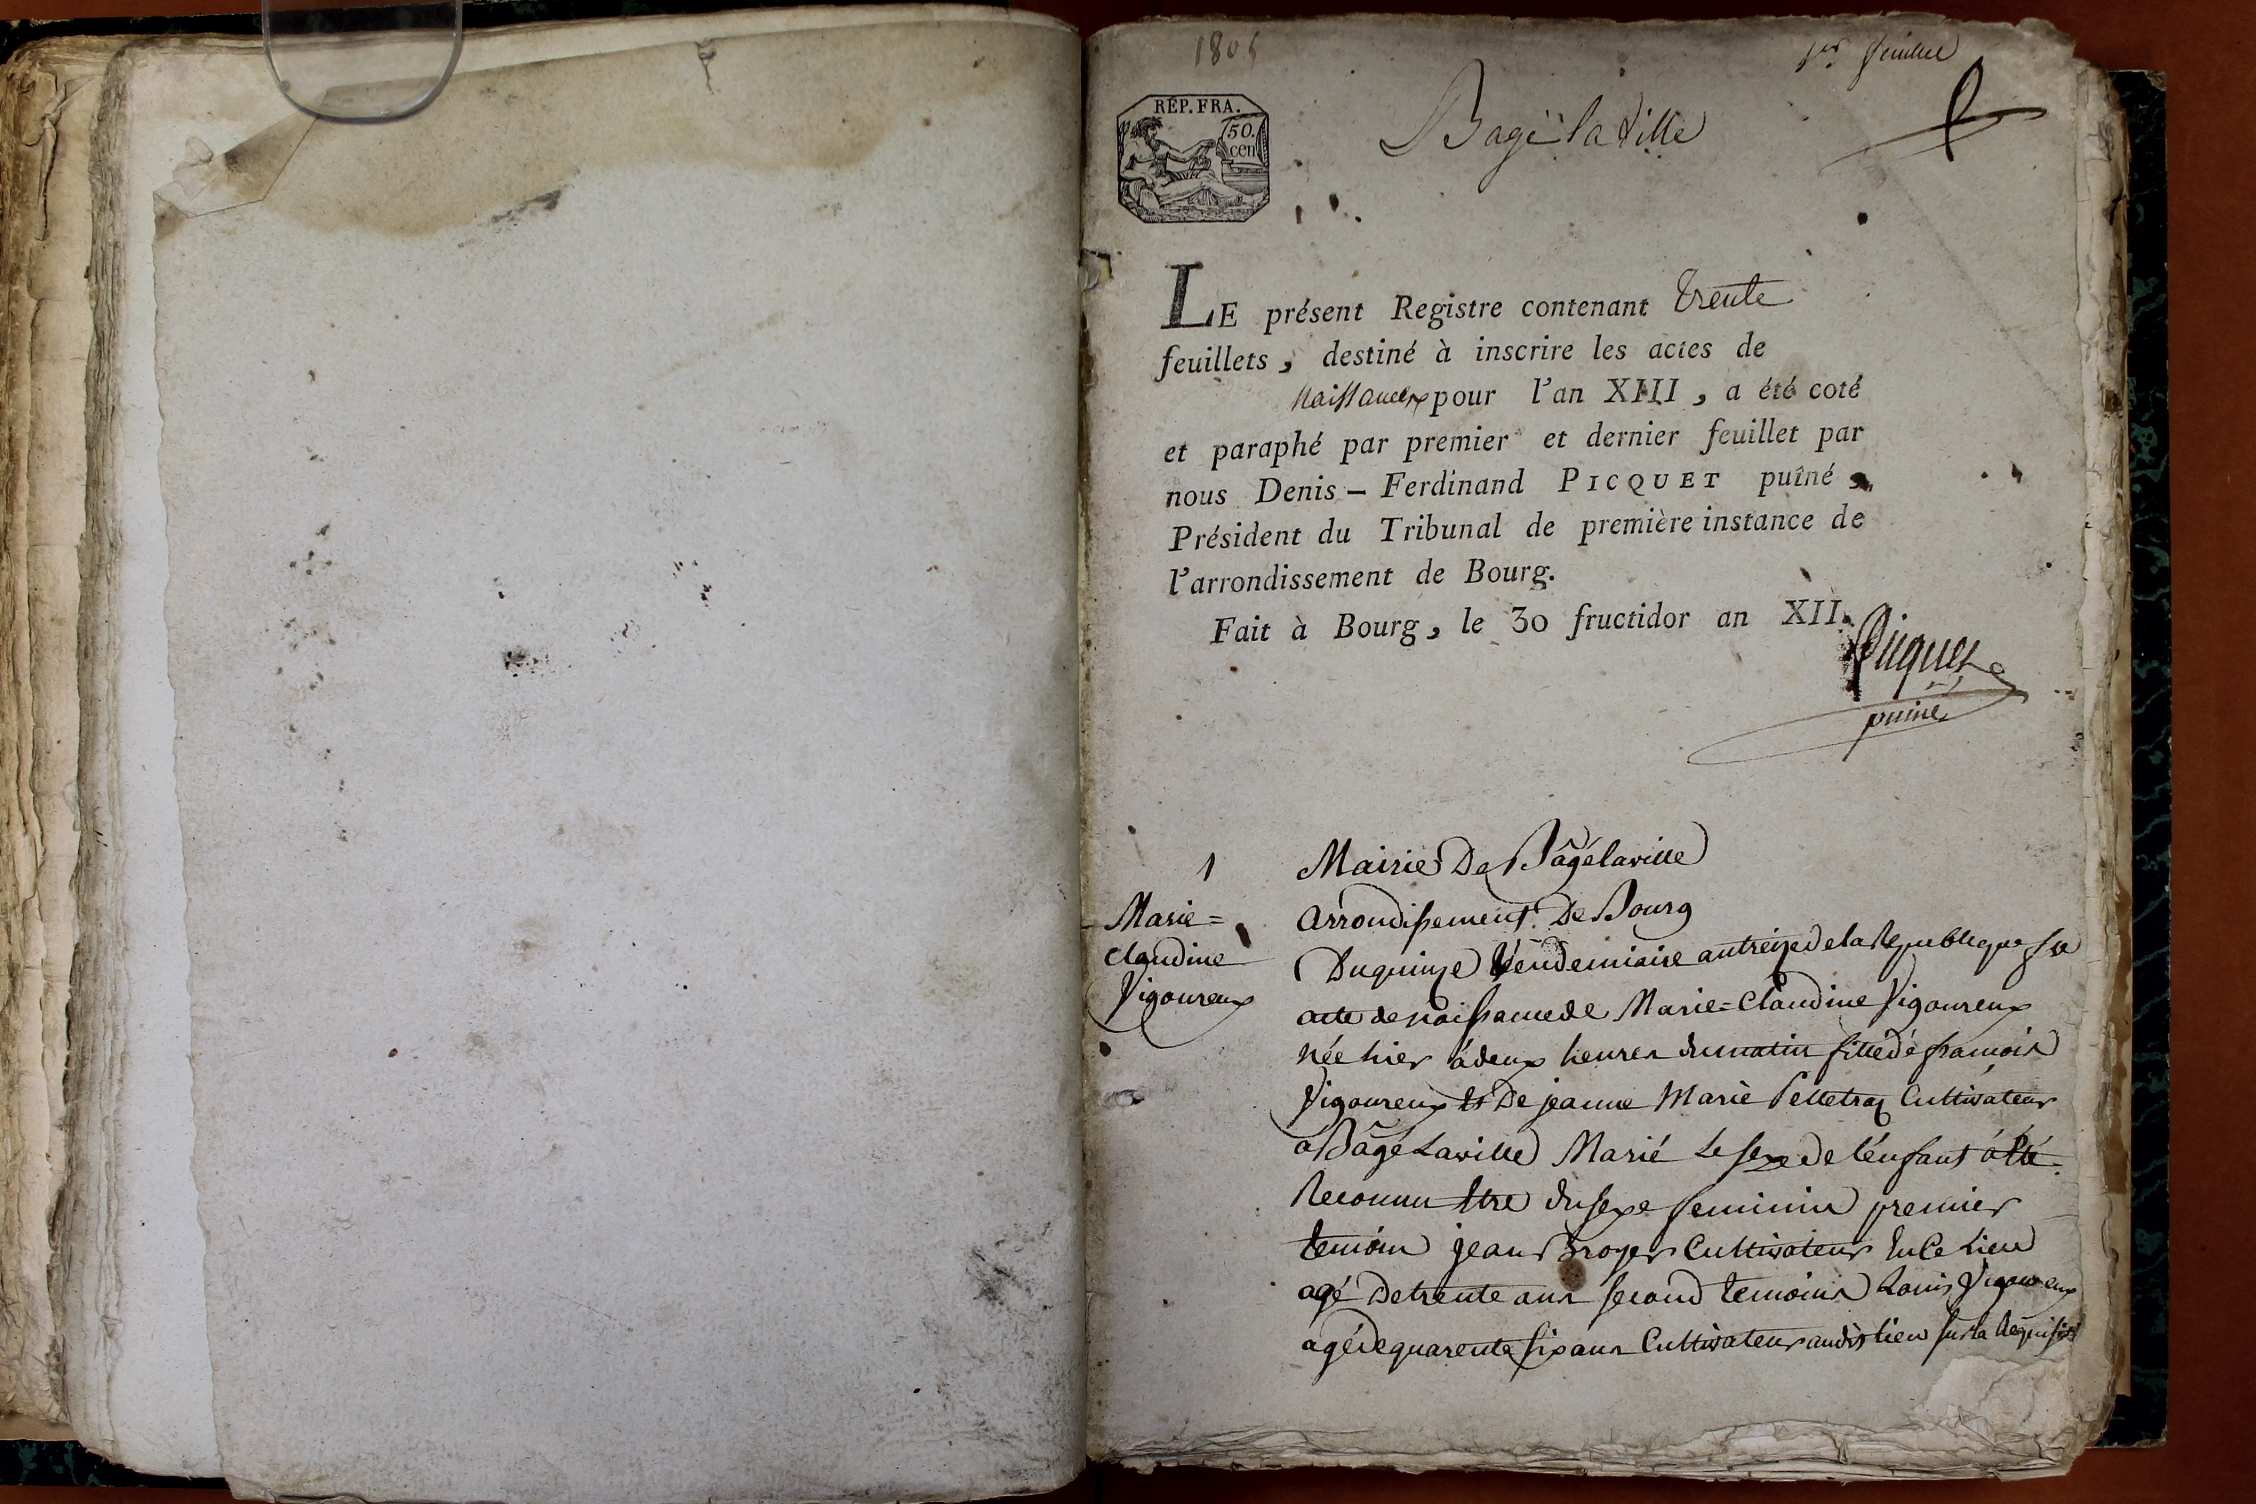 1805
1er feuillet
RÉP. FRA.
50.
cen
Bagé la ville
LE présent Registre contenant trente
feuillets, destiné à inscrire les actes de
Naissances pour l'an XIII, a été coté
et paraphé par premier et dernier feuillet par
nous Denis-Ferdinand PICQUET puîné,
Président du Tribunal de première instance de
l'arrondissement de Bourg.
Fait à Bourg, le 30 fructidor an XII.
Picquet
puiné
1
Marie=
Claudine
Vigoureux
Mairie De Bâgélaville
Arrondissement De Bourg
Du quinze Vendemiaire an treize de la Republique fse
acte de Naissance de Marie=Claudine Vigoureux
née hier à deux heures du matin fille de francois
Vigoureux et De jeanne Marie Pelletraz Cultivateur
a Bâgé Laville Marié Le sexe de l'enfant à été
Reconnu Etre du sexe feminin premier
temoin jean Broyer Cultivateur En Ce Lieu
agé De trente ans second temoins Louis Vigoureux
agé de quarente six ans Cultivateur audit lieu sur la Requisiti